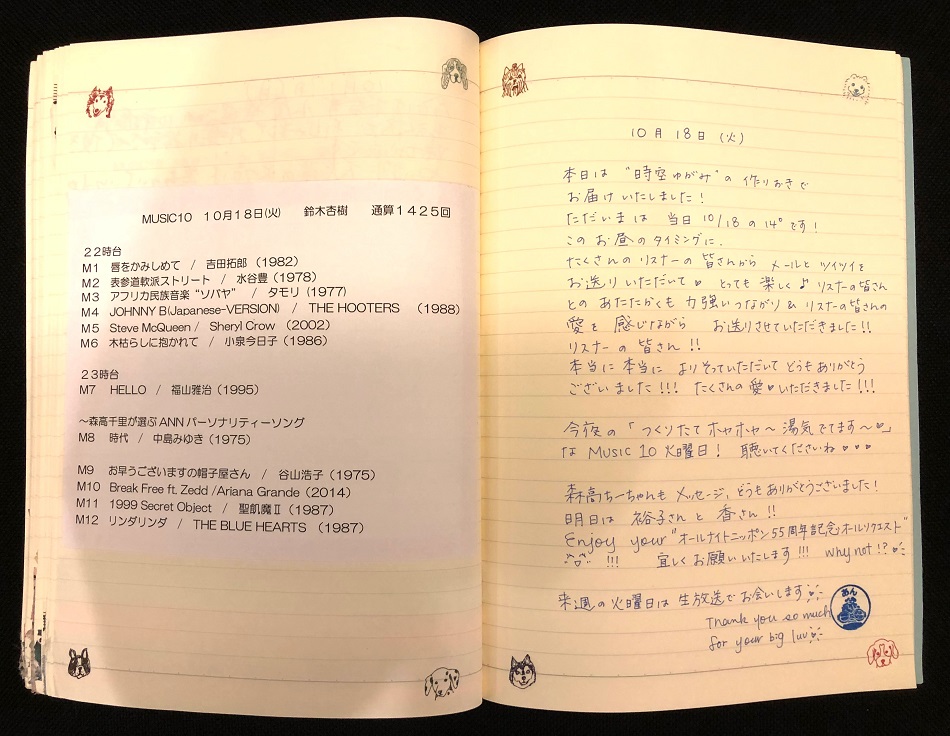 MUSIC10 10月18日(火) 鈴木杏樹 通算1425回
22時台
M1 唇をかみしめて / 吉田拓郎 (1982)
M2 表参道軟派ストリート / 水谷豊 (1978)
M3 アフリカ民族音楽“ソバヤ” / タモリ (1977)
M4 JOHNNY B(Japanese-VERSION) / THE HOOTERS (1988)
M5 Steve McQueen / Sheryl Crow (2002)
M6 木枯らしに抱かれて / 小泉今日子 (1986)
23時台
M7 HELLO / 福山雅治 (1995)
～森高千里が選ぶANNパーソナリティーソング
M8 時代 / 中島みゆき (1975)
M9 お早うございますの帽子屋さん / 谷山浩子 (1975)
M10 Break Free ft. Zedd /Ariana Grande (2014)
M11 1999 Secret Object / 聖飢魔Ⅱ (1987)
M12 リンダリンダ / THE BLUE HEARTS (1987)
10月 18日 (火)
本日は “時空ゆがみ” の 作りおきで
お届けいたしました!
ただいまは 当日 10/18 の 14°です!
この お昼の タイミングに、
たくさんの リスナーの 皆さんから メールと ツイツイを
お送りいただいて♥ とっても 楽しく♪ リスナーの皆さん
との あたたかくも 力強いつながり & リスナーの皆さんの
愛を 感じながら お送りさせていただきました!!
リスナーの 皆さん!!
本当に 本当に よりそっていただいて どうもありがとう
ございました!!! たくさんの 愛♥いただきました!!!
今夜の 「つくりたて ホヤホヤ～ 湯気でてます～♥」
な Music 10 火曜日! 聴いてくださいね♥♥♥
森高ちーちゃんも メッセージ、どうもありがとうございました!
明日は 裕子さんと 香さん!!
Enjoy your “オールナイトニッポン55周年記念オールリクエスト”
!!! 宜しくお願いいたします!!! why not!?
来週の 火曜日は 生放送で お会いします
あん
Thank you so much
for your big luv